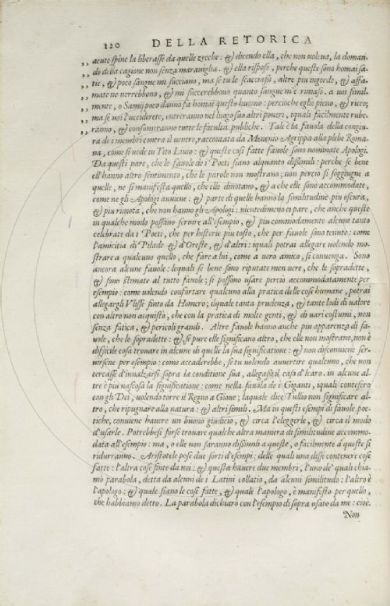 120 DELLA RETORICA
„ acute spine la liberasse da quelle zecche: & dicendo ella, che non voleua, la doman-
„ dò della cagione non senza marauiglia. & ella rispose, perche queste sono homai sa-
„ tie, & poco sangue mi succiano, ma se tu le scaccerai, altre più ingorde, & affa-
„ mate ne verrebbono, & mi succerebbono quanto sangue m'è rimaso. a voi simil-
„ mente, o Samij poco danno fa homai questo huomo: percioche egli è pieno, & ricco;
„ ma se voi l'ucciderete, entreranno nel luogo suo altri poueri, i quali facilmente rube-
„ ranno, & consumeranno tutte le facultà publiche. Tale è la fauola della congiu-
ra de i membri contra il ventre, raccontata da Menenio Agrippa alla plebe Roma-
na, come si vede in Tito Liuio: & queste così fatte fauole sono nominate Apologi.
Da questi pare, che le fauole de i Poeti siano alquanto dissimili: perche se bene
ell'hanno altro sentimento, che le parole non mostrano; non perciò si soggiugne a
quelle, ne si manifesta quello, che elle dinotano, & a che elle sono accommodate,
come ne gli Apologi auuiene: & parte di quelle hanno la similitudine più oscura,
& più rimota, che non hanno gli Apologi: niente dimeno ci pare, che anche queste
in qualche modo possino seruire all'essempio, & più commodamente alcune tanto
celebrate da i Poeti, che per historie più tosto, che per fauole sono tenute: come
l'amicitia di Pilade & d'Oreste, & d'altri: i quali potrai allegare volendo mo-
strare a qualcuno quello, che fare a lui, come a vero amico, si conuenga. Sono
ancora alcune fauole: le quali se bene sono riputate men vere, che le sopradette,
& son stimate al tutto fauole; si possono usare perciò accommodatamente per
essempio: come volendo confortare qualcuno alla pratica delle cose humane, potrai
allegargli Ulisse finto da Homero; il quale tanta prudenza, & tante lodi di valore
con altro non acquistò, che con la pratica di molte genti, & di uari costumi, non
senza fatica, & pericoli grandi. Altre fauole hanno anche più apparenza di fa-
uole, che le sopradette: & se pure elle significano altro, che elle non mostrano, non è
difficile cosa trouare in alcune di quelle la sua significatione: & non disconuiene ser-
uirsene per essempio: come accaderebbe, se tu volendo auuertire qualcuno, che non
cercasse d'innalzarsi sopra la conditione sua, allegassi il caso d'Icaro. in alcune al-
tre è più nascosa la significatione: come nella fauola de i Giganti, i quali contesero
con gli Dei, volendo torre il Regno a Gioue; la quale dice Tullio non significare al-
tro, che ripugnare alla natura: & altri simili. Ma in questi essempi di fauole poe-
tiche, conuiene hauere un buono giudicio, & circa l'eleggerle, & circa il modo
d'usarle. Potrebbesi forse trouare qualche altra maniera di similitudine accommo-
data all'essempio: ma, o elle non saranno dissimili a queste, o facilmente a queste si
ridurranno. Aristotele pose due sorti d'essempi; delle quali una disse contenere cose
fatte: l'altra cose finte da noi: & questa hauere due membri, l'uno de' quali chia-
mò parabola, detta da alcuni de i Latini collatio, da alcuni similitudine: l'altro è
l'apologo: & quale siano le cose fatte, & quale l'apologo, è manifesto per quello,
che habbiamo detto. La parabola dichiarò con l'essempio di sopra usato da me: cioè.
Non